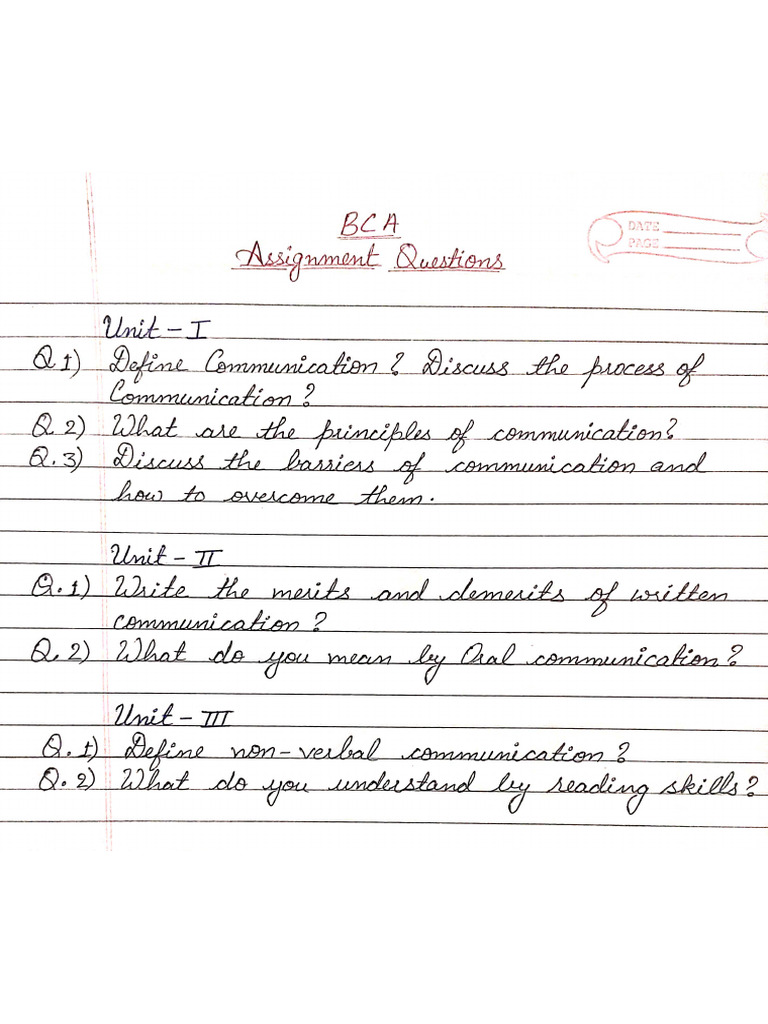 BCA
Assignment Questions
DATE
PAGE
Unit - I
Q 1) Define Communication ? Discuss the process of
Communication ?
Q. 2) What are the principles of communication?
Q. 3) Discuss the barriers of communication and
how to overcome them.
Unit - II
Q. 1) Write the merits and demerits of written
communication ?
Q. 2) What do you mean by Oral communication ?
Unit - III
Q. 1) Define non-verbal communication ?
Q. 2) What do you understand by reading skills ?